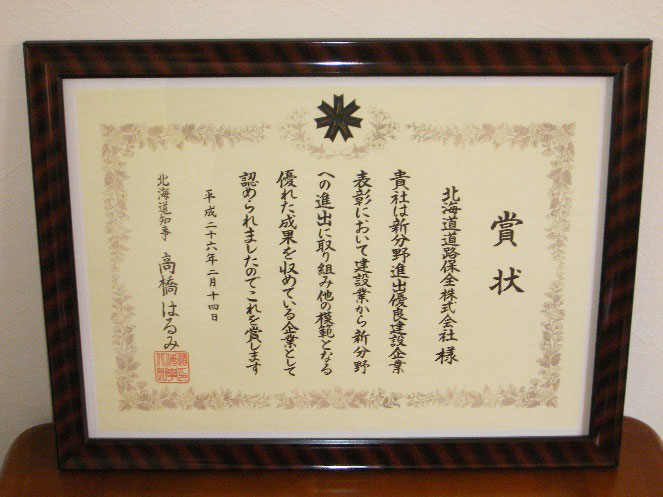 賞状
北海道道路保全株式会社 様
貴社は新分野進出優良建設企業
表彰において建設業から新分野
への進出に取り組み他の模範となる
優れた成果を収めている企業として
認められましたのでこれを賞します
平成二十六年二月十四日
北海道知事 高橋はるみ